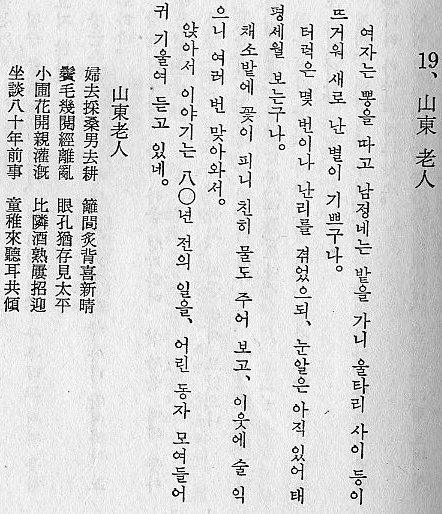 19、山東 老人
여자는 뽕을 따고 남정네는 밭을 가니 울타리 사이 등이
뜨거워 새로 난 별이 기쁘구나。
터럭은 몇 번이나 난리를 겪었으되、눈알은 아직 있어 태
평세월 보는구나。
채소밭에 꽃이 피니 친히 물도 주어 보고、이웃에 술 익
으니 여러 번 맞아와서。
앉아서 이야기는 八〇년 전의 일을、어린 동자 모여들어
귀 기울여 듣고 있네。
山東老人
婦去採桑男去耕 籬間炙背喜新晴
鬢毛幾閱經離亂 眼孔猶存見太平
小圃花開親灌漑 比隣酒熟屢招迎
坐談八十年前事 童稚來聽耳共傾